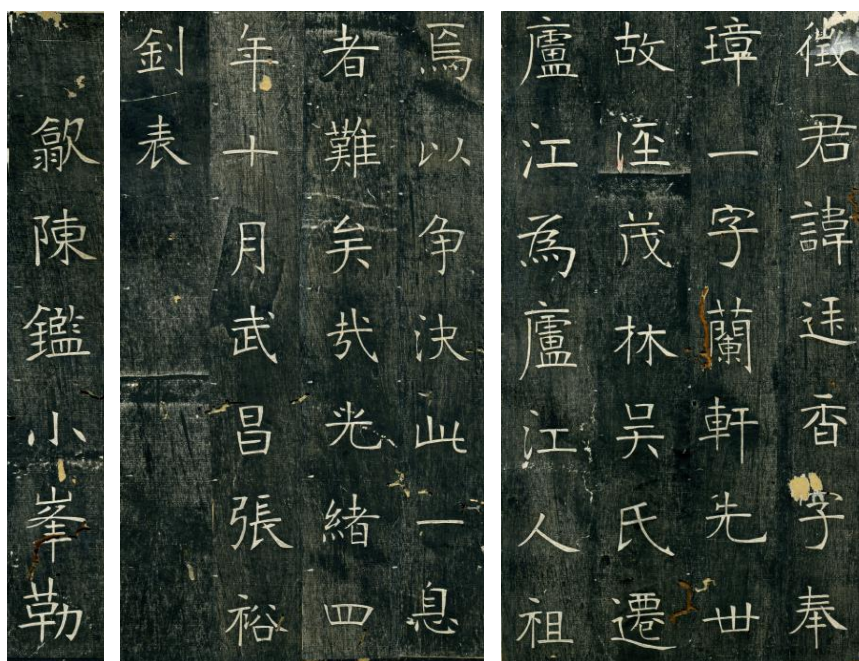 徵君諱廷香字奉
璋一字蘭軒先世
故涇茂林吳氏遷
廬江為廬江人祖
焉以争決此一息
者難矣哉光緒四
年十月武昌張裕
釗表
歙陳鑑小峯勒